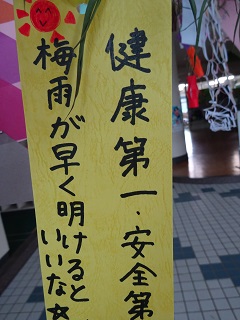 健康第一・安全第
梅雨が早く明けると
いいな